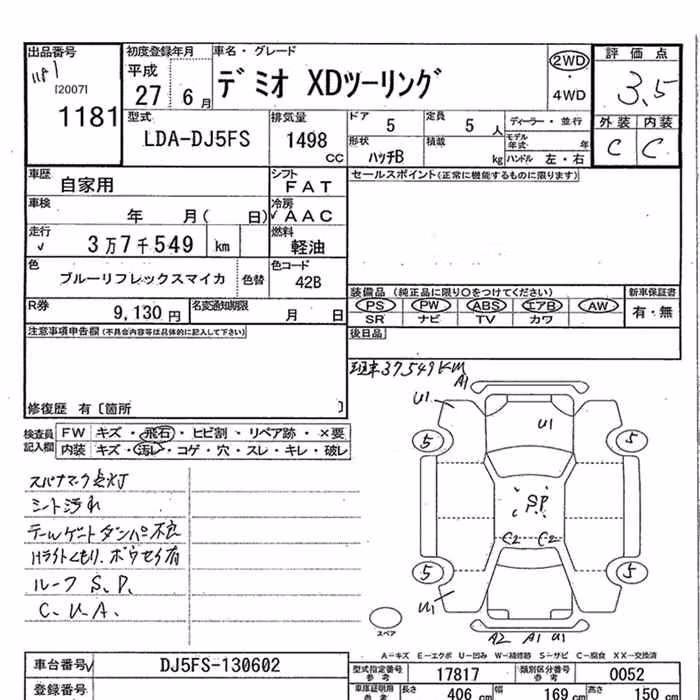 出品番号
[2007]
1181
初度登録年月
平成
27 6月
車名・グレード
デミオ XDツーリング
2WD
・
4WD
評価点
3.5
外装 内装
C C
型式
LDA-DJ5FS
排気量
1498
CC
ドア
5
定員
5人
形状
ハッチB
積載
kg
ディーラー・並行
モデル年式 年
ハンドル 左・右
車歴
自家用
シフト
FAT
車検
年 月( 日)
冷房
AAC
走行
3万7千549 km
燃料
軽油
色
ブルーリフレックスマイカ
色替
色コード
42B
R券
9,130円
名変通知期限
月 日
セールスポイント(正常に機能するものに限ります)
装備品 (純正品に限り〇をつけてください)
新車保証書
PS PW ABS エアB AW
有・無
SR ナビ TV カワ
後日品
注意事項申告欄(不具合内容等は具体的に記入して下さい)
修復歴 有〔箇所 〕
検査員記入欄
FW キズ・飛石・ヒビ割・リペア跡・×要
内装 キズ・汚レ・コゲ・穴・スレ・キレ・破レ
スパナマーク点灯
シート汚れ
テールゲートダンパー不良
Hライトくもり、ボウセイ有
ルーフ S.P.
C.U.A.
37549KM
A1
U1
U1
5
5
S.P.
C2 C2
5
5
U1
A2 A1 U1
スペア
A-キズ E-エクボ U-凹み W-補修跡 S-サビ C-腐食 XX-交換済
車台番号
DJ5FS-130602
登録番号
型式指定番号
参考
17817
類別区分番号
参考
0052
車庫証明用
参考
長さ 406 cm
幅 169 cm
高さ 150 cm